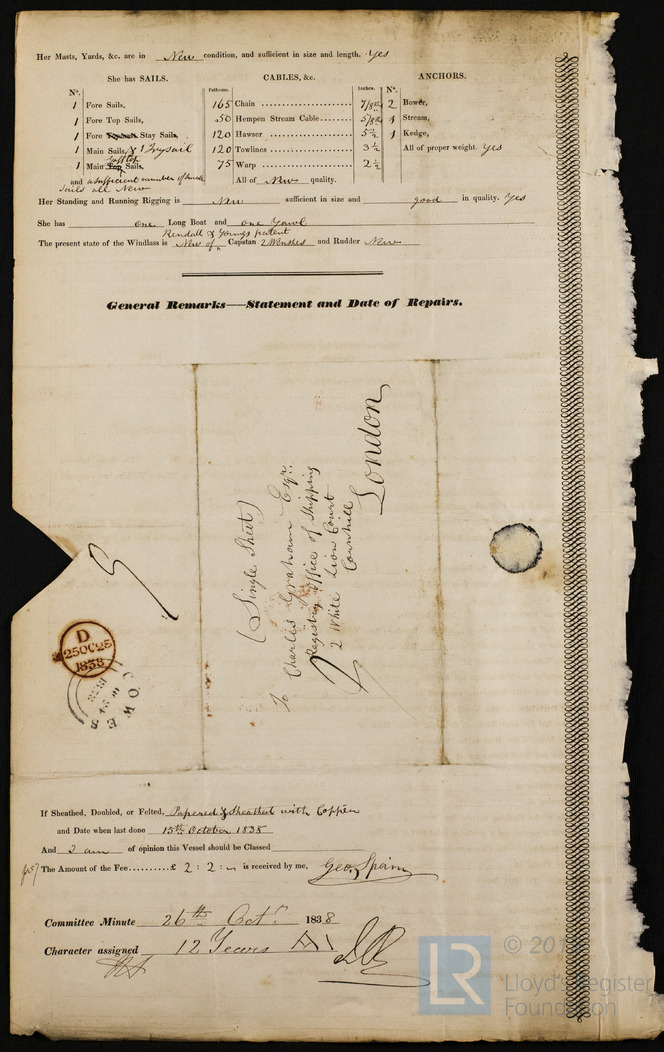 Her Masts, Yards, &c. are in New condition, and sufficient in size and length. Yes
She has SAILS.
Nº.
1 Fore Sails,
1 Fore Top Sails,
1 Fore Stay Sails,
1 Main Sails, & 1 Trysail
1 Main Gafftop Sails,
and a sufficient number of
Sails all New
CABLES, &c.
Fathoms. Inches.
165 Chain 7/8
50 Hempen Stream Cable 5/8
120 Hawser 5½
120 Towlines 3½
75 Warp 2½
All of New quality.
ANCHORS.
Nº.
2 Bower,
1 Stream,
1 Kedge,
All of proper weight. Yes
Her Standing and Running Rigging is New sufficient in size and good in quality. Yes
She has one Long Boat and one Yawl
Kendall & Youngs patent
The present state of the Windlass is New of Capstan 2 Winshes and Rudder New
General Remarks—Statement and Date of Repairs.
(Single Sheet)
To Charles Graham Esqr.
Registry Office of Shipping
2 White Lion Court
Cornhill
London
D
25OC25
1838
COWES
If Sheathed, Doubled, or Felted, Papered & Sheathed with Copper
and Date when last done 15th October 1838
And I am of opinion this Vessel should be Classed
The Amount of the Fee..........£ 2 : 2 : is received by me, Geo. Spain
Committee Minute 26th Octr. 1838
Character assigned 12 Years
LR
© 201
Lloyd's Register
Foundation